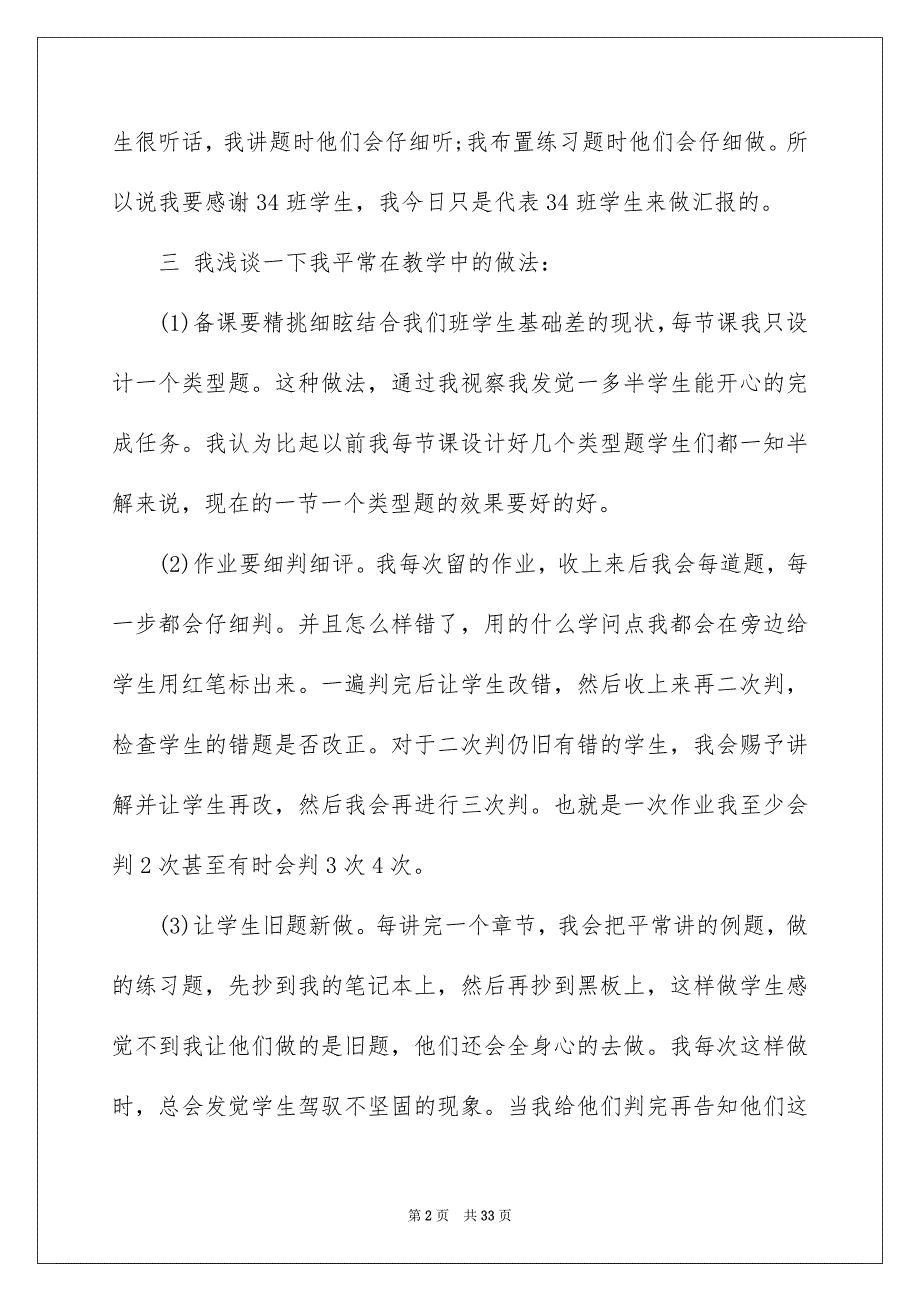 生很听话，我讲题时他们会仔细听;我布置练习题时他们会仔细做。所
以说我要感谢 34 班学生，我今日只是代表 34 班学生来做汇报的。
三 我浅谈一下我平常在教学中的做法：
(1)备课要精挑细眩结合我们班学生基础差的现状，每节课我只设
计一个类型题。这种做法，通过我视察我发觉一多半学生能开心的完
成任务。我认为比起以前我每节课设计好几个类型题学生们都一知半
解来说，现在的一节一个类型题的效果要好的好。
(2)作业要细判细评。我每次留的作业，收上来后我会每道题，每
一步都会仔细判。并且怎么样错了，用的什么学问点我都会在旁边给
学生用红笔标出来。一遍判完后让学生改错，然后收上来再二次判，
检查学生的错题是否改正。对于二次判仍旧有错的学生，我会赐予讲
解并让学生再改，然后我会再进行三次判。也就是一次作业我至少会
判 2 次甚至有时会判 3 次 4 次。
(3)让学生旧题新做。每讲完一个章节，我会把平常讲的例题，做
的练习题，先抄到我的笔记本上，然后再抄到黑板上，这样做学生感
觉不到我让他们做的是旧题，他们还会全身心的去做。我每次这样做
时，总会发觉学生驾驭不坚固的现象。当我给他们判完再告知他们这
第 2 页 共 33 页